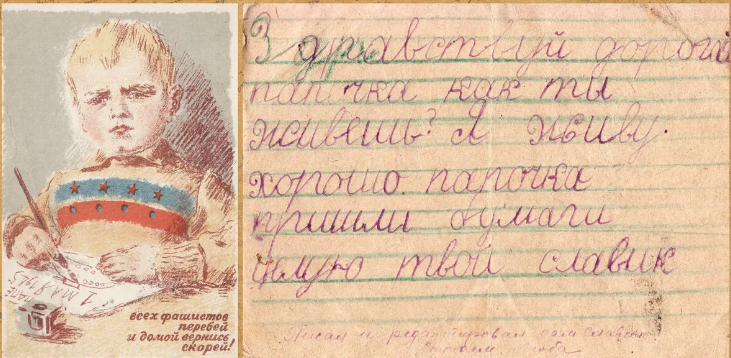 1 МАЯ 1945
всех фашистов
перебей
и домой вернись
скорей!
Здравствуй дорогой
папочка как ты
живешь? Я живу.
хорошо. парочка
пришли бумаги
целую твой славик
Писал и редактировал сам Славик